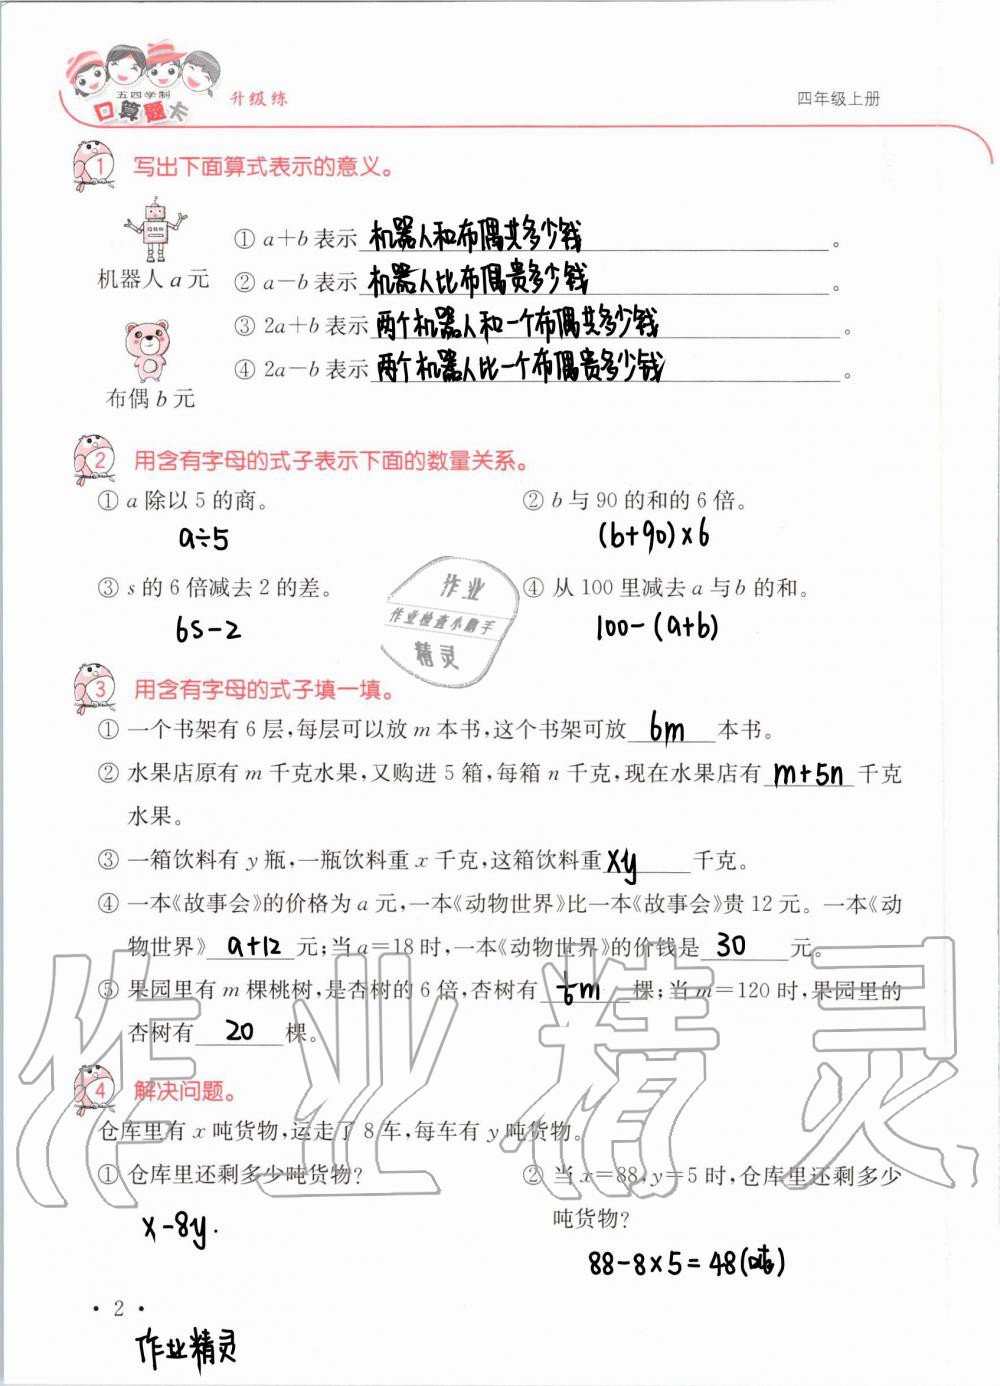 五四学制
口算题卡
升级练
四年级上册
1 写出下面算式表示的意义。
机器人 a 元
布偶 b 元
① a+b 表示 机器人和布偶共多少钱 。
② a-b 表示 机器人比布偶贵多少钱 。
③ 2a+b 表示 两个机器人和一个布偶共多少钱 。
④ 2a-b 表示 两个机器人比一个布偶贵多少钱 。
2 用含有字母的式子表示下面的数量关系。
① a 除以 5 的商。
a÷5
② b 与 90 的和的 6 倍。
(b+90)×6
③ s 的 6 倍减去 2 的差。
6s-2
④ 从 100 里减去 a 与 b 的和。
100-(a+b)
作业
作业检查小帮手
精灵
3 用含有字母的式子填一填。
① 一个书架有 6 层,每层可以放 m 本书,这个书架可放 6m 本书。
② 水果店原有 m 千克水果,又购进 5 箱,每箱 n 千克,现在水果店有 m+5n 千克
水果。
③ 一箱饮料有 y 瓶,一瓶饮料重 x 千克,这箱饮料重 xy 千克。
④ 一本《故事会》的价格为 a 元,一本《动物世界》比一本《故事会》贵 12 元。一本《动
物世界》 a+12 元;当 a=18 时,一本《动物世界》的价钱是 30 元。
⑤ 果园里有 m 棵桃树,是杏树的 6 倍,杏树有 1/6 m 棵;当 m=120 时,果园里的
杏树有 20 棵。
作业精灵
4 解决问题。
仓库里有 x 吨货物,运走了 8 车,每车有 y 吨货物。
① 仓库里还剩多少吨货物?
x-8y.
② 当 x=88,y=5 时,仓库里还剩多少
吨货物?
88-8×5=48(吨)
• 2 •
作业精灵